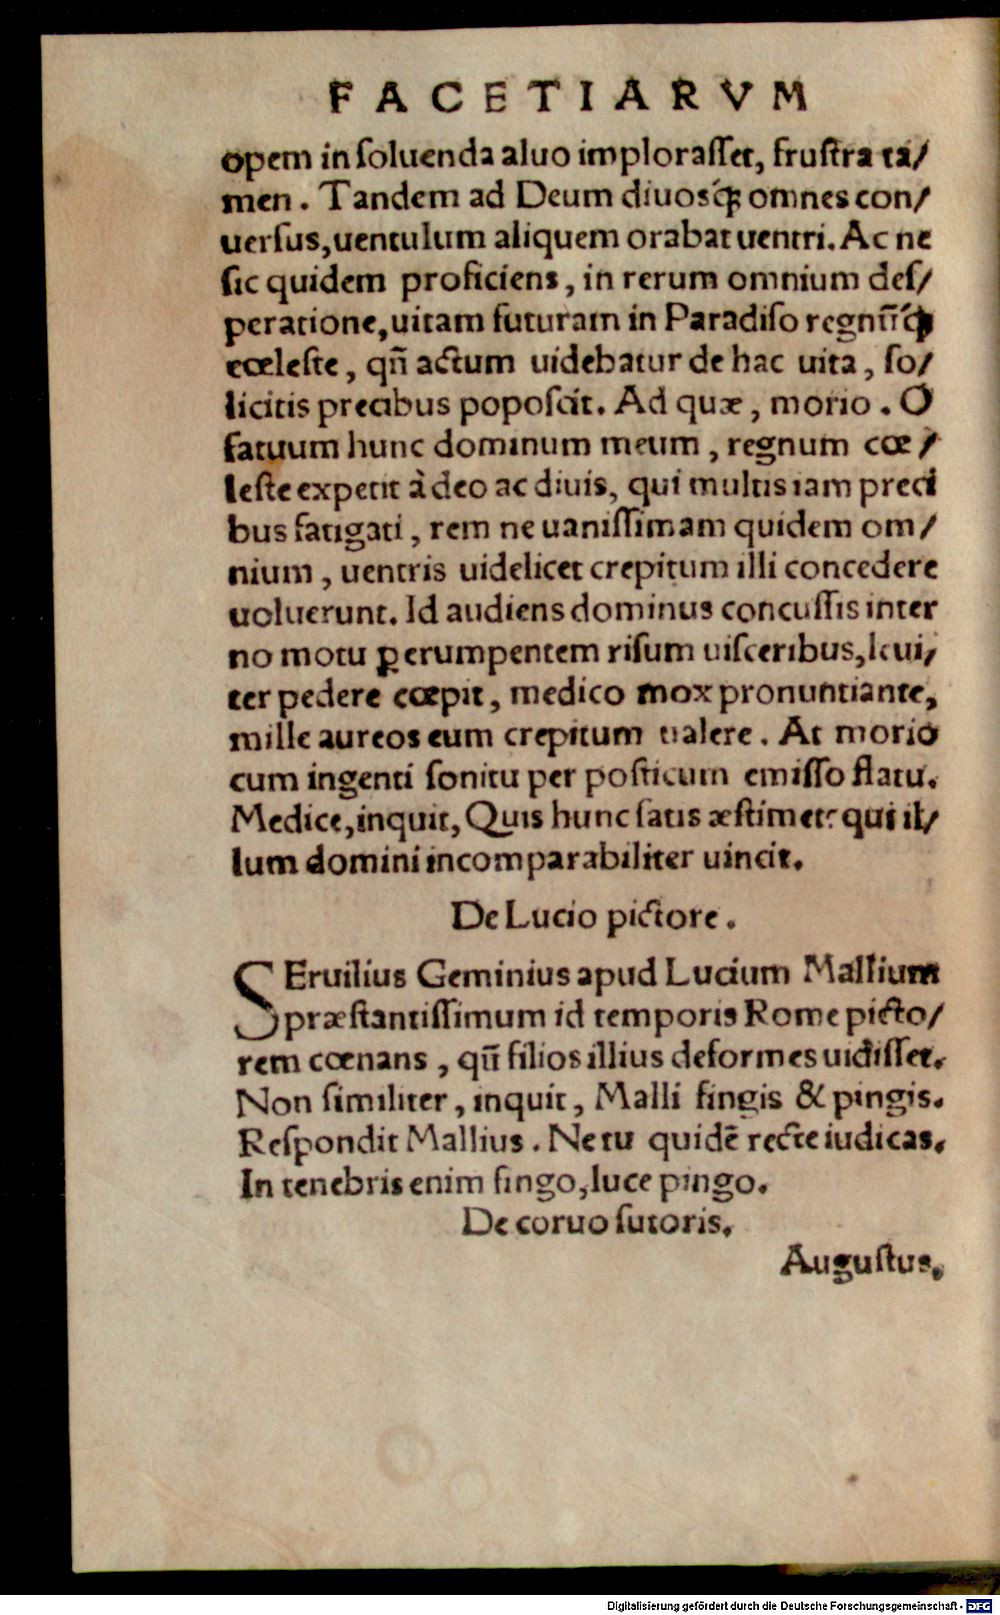 FACETIARVM
opem in ſoluenda aluo imploraſſet, fruſtra ta/
men. Tandem ad Deum diuosq́ꝫ omnes con/
uerſus, uentulum aliquem orabat uentri. Ac ne
ſic quidem proficiens, in rerum omnium deſ/
peratione, uitam futuram in Paradiſo regnūq́ꝫ
cœleſte, qñ actum uidebatur de hac uita, ſo/
licitis precibus popoſcit. Ad quæ, morio. O
fatuum hunc dominum meum, regnum cœ/
leſte expetit à deo ac diuis, qui multis iam preci
bus fatigati, rem ne uaniſſimam quidem om/
nium, uentris uidelicet crepitum illi concedere
uoluerunt. Id audiens dominus concuſſis inter
no motu ꝑ erumpentem riſum uiſceribus, leui/
ter pedere cœpit, medico mox pronuntiante,
mille aureos eum crepitum ualere. At morio
cum ingenti ſonitu per poſticum emiſſo flatu.
Medice, inquit, Quis hunc ſatis æſtimet? qui il/
lum domini incomparabiliter uincit.
De Lucio pictore.
SEruilius Geminius apud Lucium Mallium
præſtantiſſimum id temporis Rome picto/
rem cœnans, qū filios illius deformes uidiſſet.
Non ſimiliter, inquit, Malli fingis & pingis.
Reſpondit Mallius. Ne tu quidē recte iudicas.
In tenebris enim fingo, luce pingo.
De coruo ſutoris.
Auguſtus.
Digitalisierung gefördert durch die Deutsche Forschungsgemeinschaft - DFG